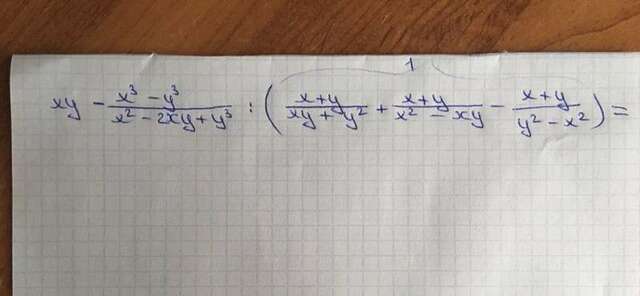 1
xy - \frac{x^3 - y^3}{x^2 - 2xy + y^3} : \left( \frac{x+y}{xy + y^2} + \frac{x+y}{x^2 - xy} - \frac{x+y}{y^2 - x^2} \right) =